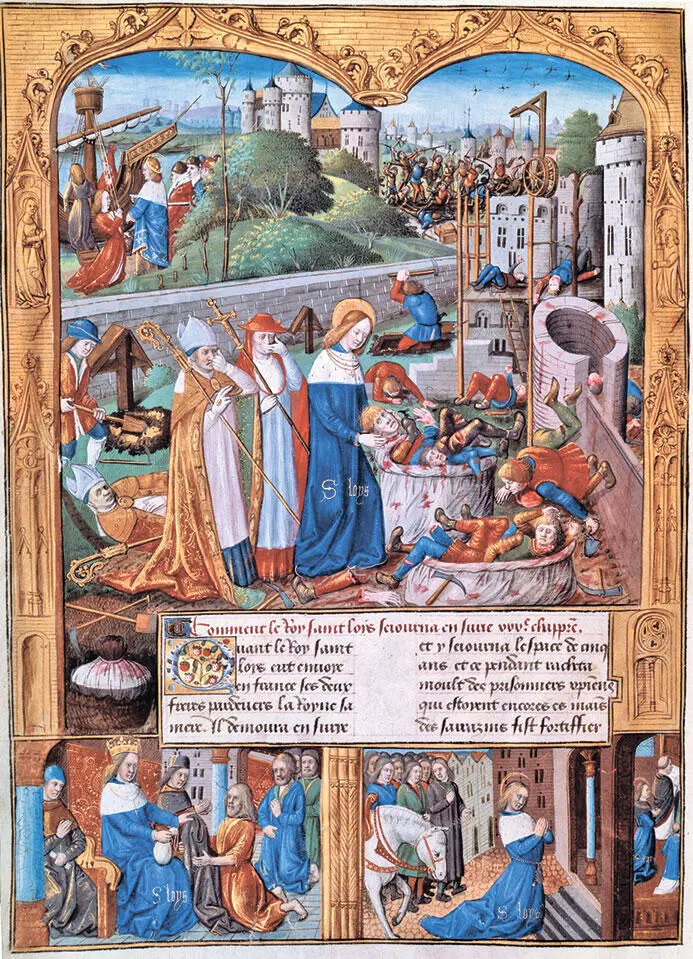 S loys
Comment le Roy saint loys seiourna en surie chappre.
Quant le Roy saint
loys eut enuoye
en france ses deux
freres pardeuers la Royne sa
mere. Il demoura en surie
et y seiourna lespace de cinq
ans et ce pendant racheta
moult des prisonniers xpiens
qui estoyent encores es mains
des sarrazins fist fortiffier
S loys
S loys